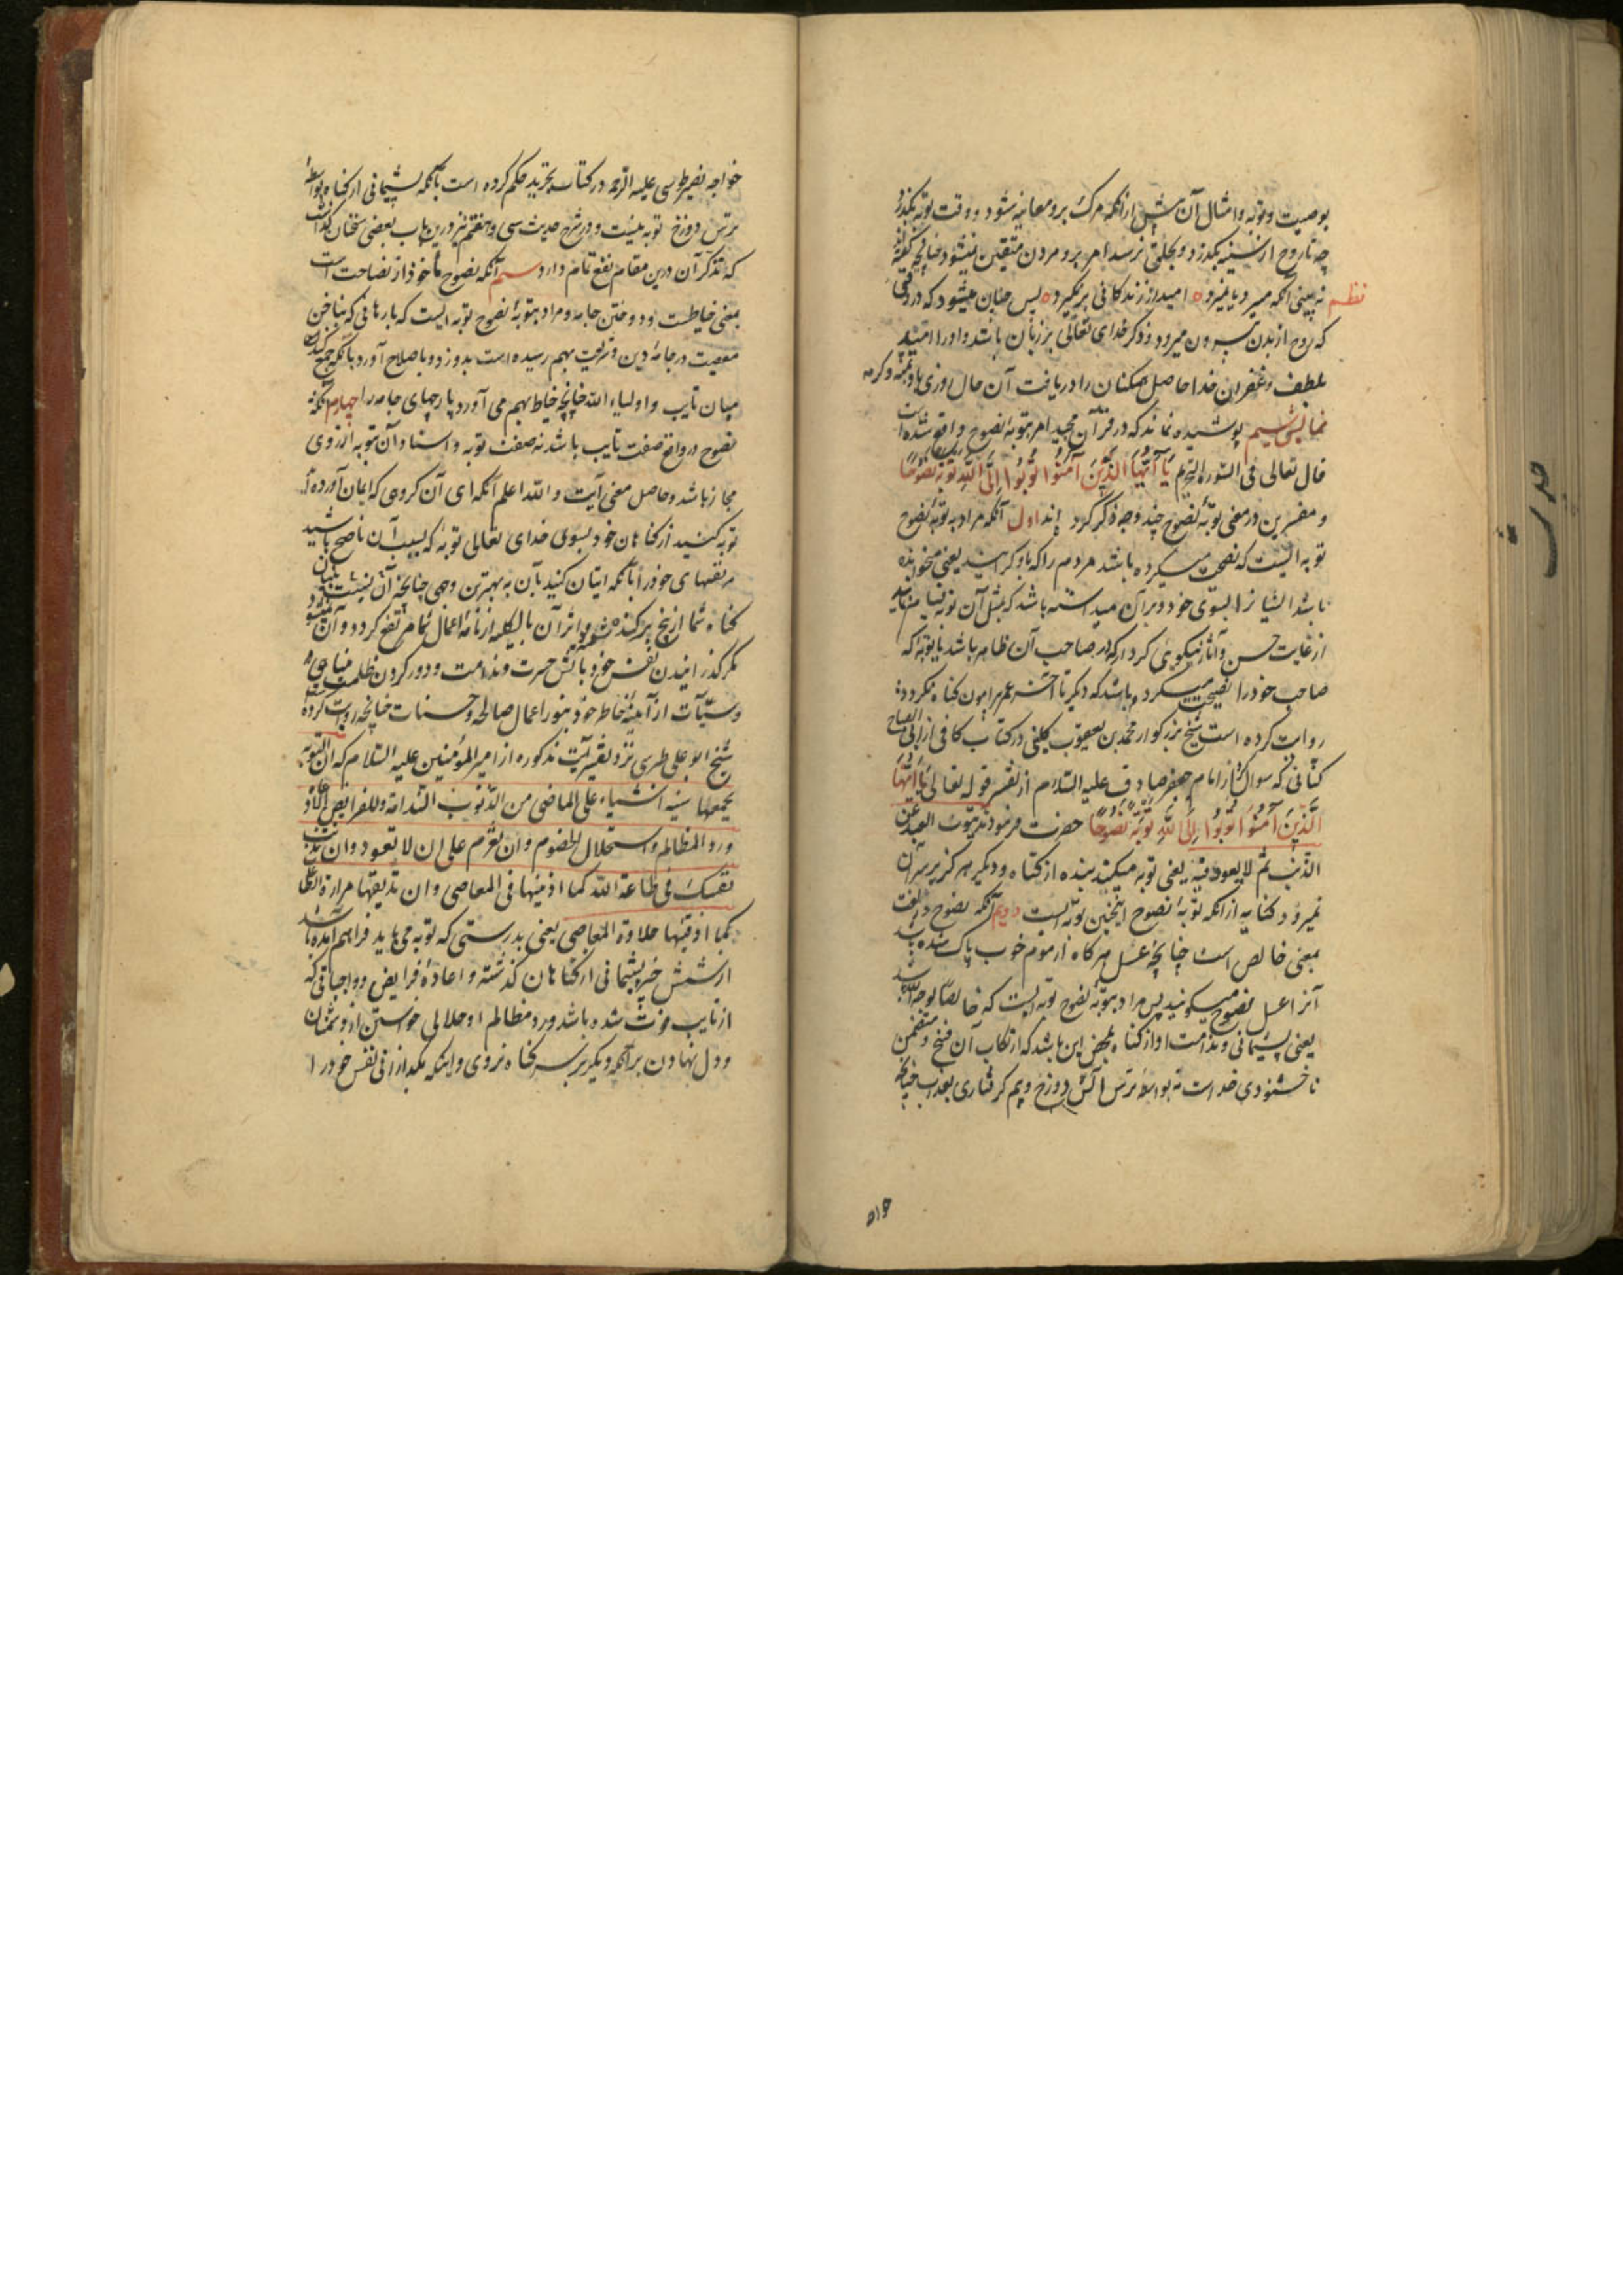 بوصیت و توبه و امثال آن پیش از آنکه مرگ برو معاینه شود و وقت توبه بگذرد
چه تا روح از سینه بگذرد و بحلق نرسد امر برو مردن متیقن نمیشود چنانچه گفته‌اند
نظم نه بینی آنکه میرد یا نمیرد ه امید از زندکانی برنگیرد ه پس چنان میشود که در وقتی
که روح از بدن بیرون میرود ذکر خدای تعالی بر زبان باشد و او را امید
بلطف و غفران خدا حاصل دریافت آن حال روزی باد بمنه وکرمه
نمایش ششم پوشیده نماند که در قرآن مجید امر بتوبهٔ نصوح واقع شده است
قال تعالی فی السورة التحریم یَا أَیُّهَا الَّذِینَ آمَنُوا تُوبُوا إِلَی اللَّهِ تَوْبَةً نَصُوحًا
و مفسرین در معنی توبهٔ نصوح چند وجه ذکر کرده اند اول آنکه مراد به توبهٔ نصوح
توبه ایست که نصیحت میکرده باشد مردم را که باو کرایند یعنی میخوانده
باشد ایشانرا بسوی خود و بر آن میداشته باشد که مثل آن توبه نمایند
از غایت حسن و آثار نیکویی کردار که از صاحب آن ظاهر باشد یا توبه که
صاحب خود را نصیحت میکرده باشد که دیکر تا آخر عمر پیرامون کناه نکردد
روایت کرده است شیخ بزرکوار محمد بن یعقوب کلینی در کتاب کافی از ابی الصباح
کنانی که سوال کرد از امام جعفر صادق علیه السلام از تفسیر قوله تعالی یَا أَیُّهَا
الَّذِینَ آمَنُوا تُوبُوا إِلَی اللَّهِ تَوْبَةً نَصُوحًا حضرت فرمودند یتوب العبد عن
الذنب ثم لا یعود فیه یعنی توبه میکند بنده از کناه و دیکر هرکز بر سر آن
نمیرود کنایه از آنکه توبهٔ نصوح اینچنین توبه ایست دویم آنکه نصوح در لغت
بمعنی خالص است چنانچه عسل هرکاه از موم خوب پاک شده باشد
آنرا عسل نصوح میکویند پس مراد بتوبهٔ نصوح توبه ایست که خالصا لوجه الله باشد
یعنی پشیمانی و ندامت او از کناه بمحض این باشد که ارتکاب آن قبیح و متضمن
ناخشنودی خداست نه بواسطهٔ ترس آتش دوزخ و بیم کرفتاری بعذاب چنانچه
خواجه نصیر طوسی علیه الرحمه در کتاب تجرید حکم کرده است بآنکه پشیمانی از کناه بواسطهٔ
ترس دوزخ توبه نیست و در شرح حدیث سی و هفتم نیز درین باب بعضی سخنان کذشت
که تذکر آن درین مقام نفع تمام دارد سیم آنکه نصوح ماخوذ از نصاحت است
بمعنی خیاطت و دوختن جامه و مراد بتوبهٔ نصوح توبه ایست که پارهایی که بناخن
معصیت در جامهٔ دین و شریعت بهم رسیده است بدوزد و باصلاح آورد یا آنکه جمع کند
میان تایب و اولیاء الله چنانچه خیاط بهم می آورد پارچهای جامه را چهارم آنکه
نصوح در واقع صفت تایب باشد نه صفت توبه و اسناد آن بتوبه از روی
مجاز باشد و حاصل معنی آیت و الله اعلم آنکه ای آن کروهی که ایمان آورده‌اید
توبه کنید از کناهان خود بسوی خدای تعالی توبهٔ که بسبب آن ناصح باشید
مر نفسهای خود را بآنکه اتیان کنید بآن به بهترین وجهی چنانچه آن
کناه شما از بیخ برکنده شود و اثر آن بالکلیه از نامهٔ اعمال شما مرتفع کردد و آن نمیشود
مکر کذرانیدن نفس خود بآتش حسرت و ندامت و دور کردن ظلمت
و سیئات از آینهٔ خاطر خود بنور اعمال صالحه و حسنات چنانچه روایت کرده
شیخ ابو علی طبرسی نزد تفسیر آیت مذکوره از امیر المؤمنین علیه السلام که ان التوبة
یجمعها ستة اشیاء علی الماضی من الذنوب الندامة وللفرایض الاعادة
ورد المظالم واستحلال الخصوم وان تعزم علی ان لا تعود وان تذیب
نفسک فی طاعة الله کما اذبتها فی المعاصی وان تذیقها مرارة الطاعة
کما اذقتها حلاوة المعاصی یعنی بدرستی که توبه می باید فراهم آمده باشد
از شش چیز پشیمانی از کناهان کذشته و اعادهٔ فرایض و واجباتی که
از تایب فوت شده باشد و رد مظالم او حلالی خواستن از دشمنان
و دل نهادن بر آنکه دیکر بر سر کناه نروی و اینکه بکدازانی نفس خود را